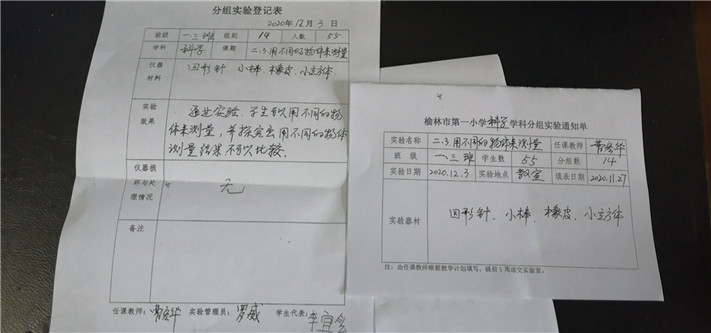 分组实验登记表
2020年12月3日
班级 一.三班 组别 14 人数 55
学科 科学 课题 二.3.用不同的物体来测量
仪器材料 回形针、小棒、橡皮、小立方体
实验效果 通过实验,学生可以用不同的物
体来测量,并探究出用不同的物体
测量结果不可以比较。
仪器损坏与处理情况 无
备注
任课教师: 实验管理员:罗威 学生代表:
榆林市第一小学科学学科分组实验通知单
实验名称 二.3.用不同的物体来测量 任课教师
班级 一.三班 学生数 55 分组数 14
实验日期 2020.12.3 实验地点 教室 填表日期 2020.11.27
实验器材 回形针、小棒、橡皮、小立方体
注:由任课教师根据教学计划填写,提前1周送交实验室。